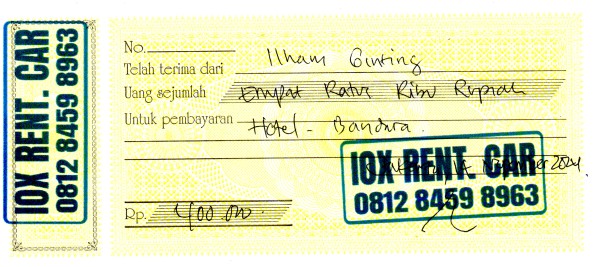 IOX RENT. CAR
0812 8459 8963
No.
Telah terima dari Ilham Ginting
Uang sejumlah Empat Ratus Ribu Rupiah
Untuk pembayaran Hotel - Bandara.
November 2024.
IOX RENT. CAR
0812 8459 8963
Rp. 400.000.